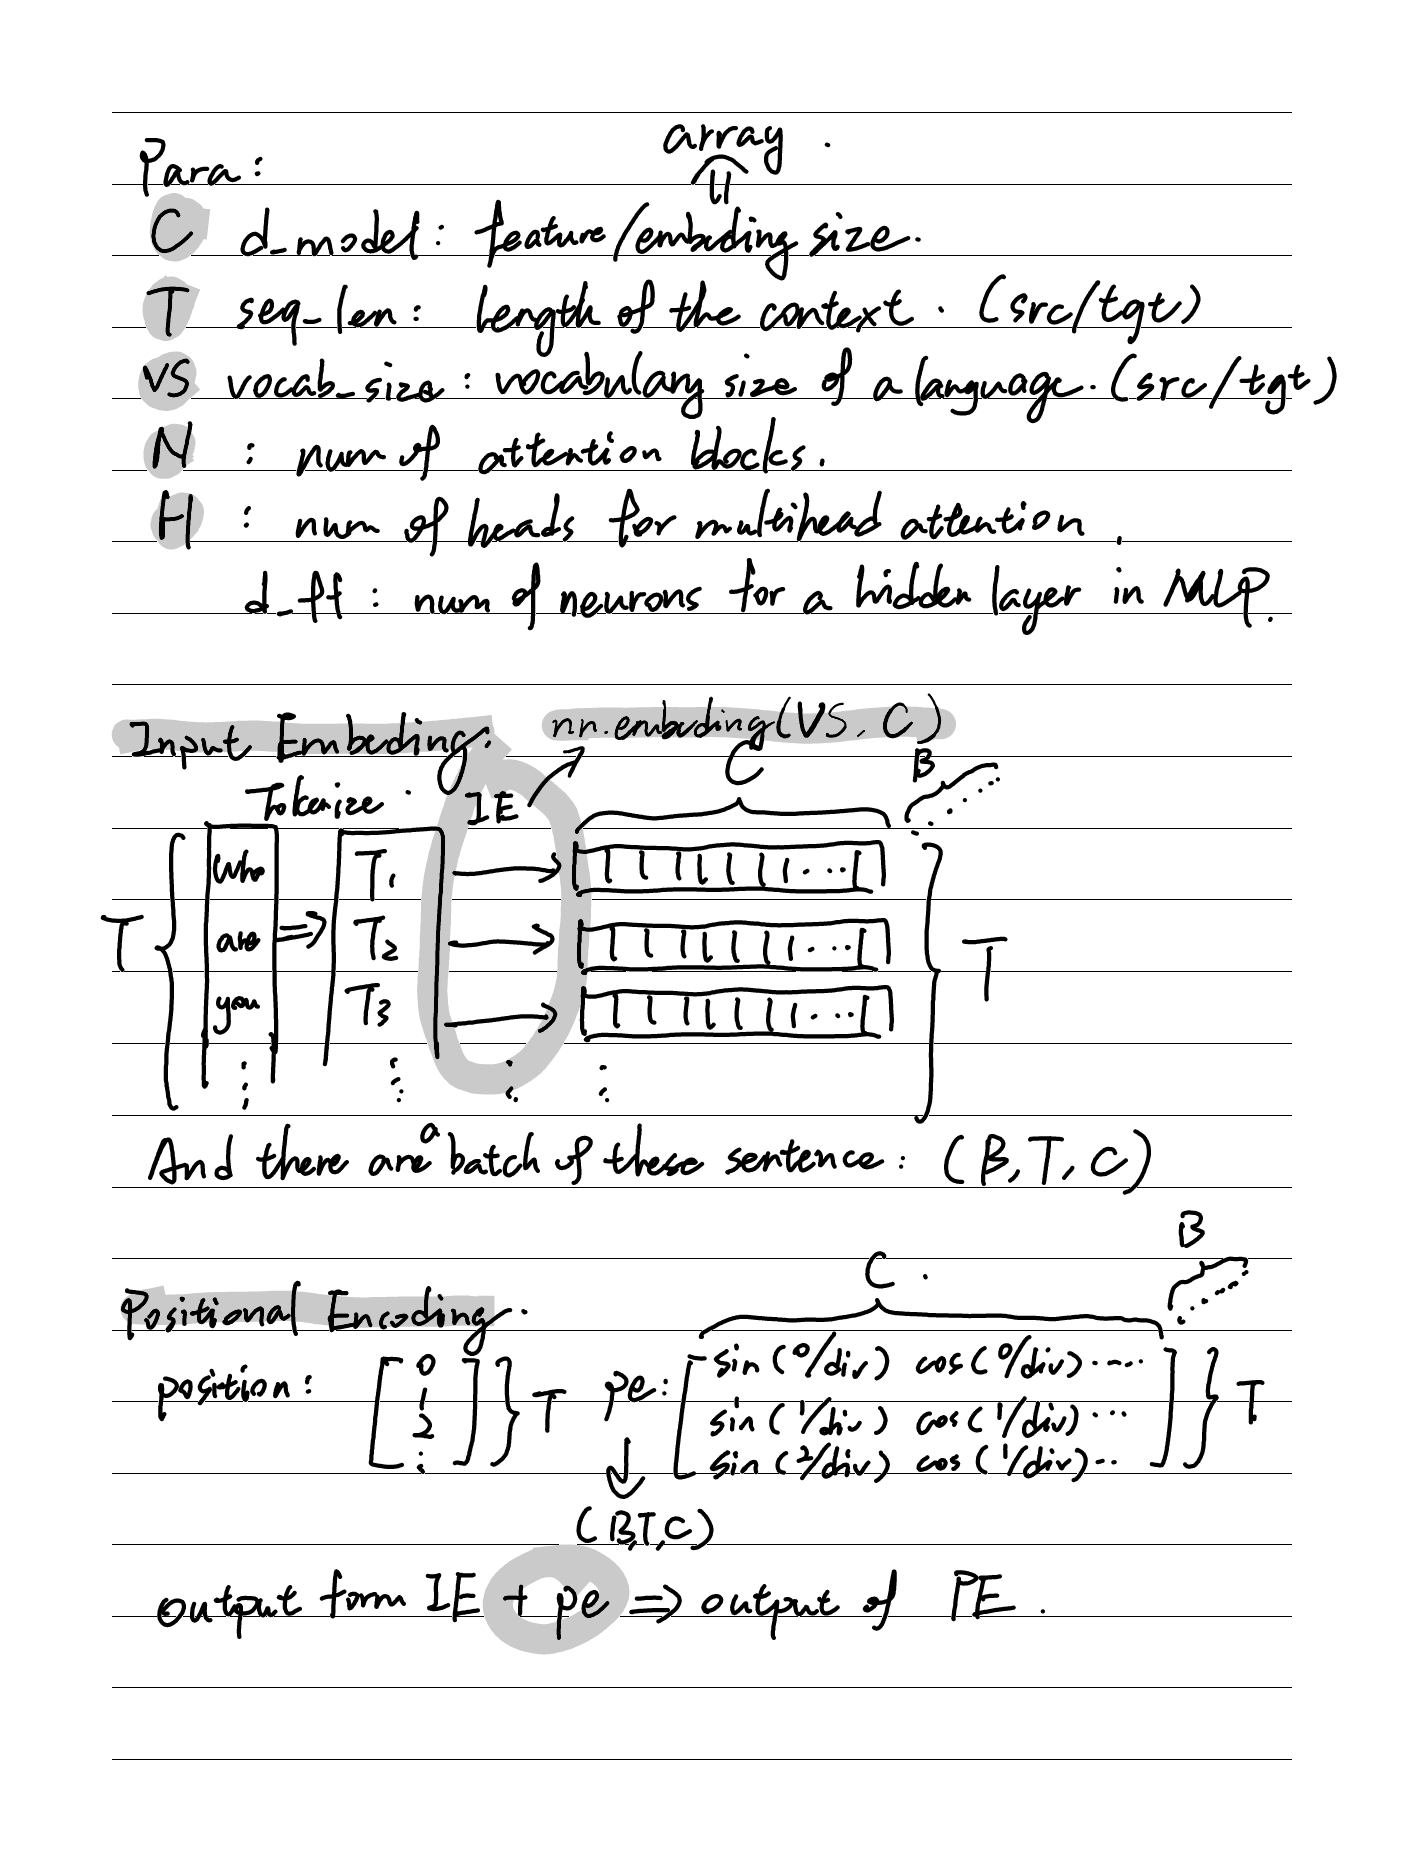 array.
Para:
C d_model: feature/embeding size.
T seq_len: length of the context. (src/tgt)
VS vocab_size: vocabulary size of a language. (src/tgt)
N : num of attention blocks.
H : num of heads for multihead attention.
d_ff: num of neurons for a hidden layer in MLP.
Input Embeding. nn.embeding(VS, C)
Tokenize. IE C B
Who T1
are T2
T T
you T3
And there are a batch of these sentence: (B, T, C)
B
C.
Positional Encoding.
position: [0 1 2 ⋮] } T pe: T
sin(0/div) cos(0/div)....
sin(1/div) cos(1/div)...
sin(2/div) cos(1/div)..
(B,T,C)
output form IE + pe => output of PE.